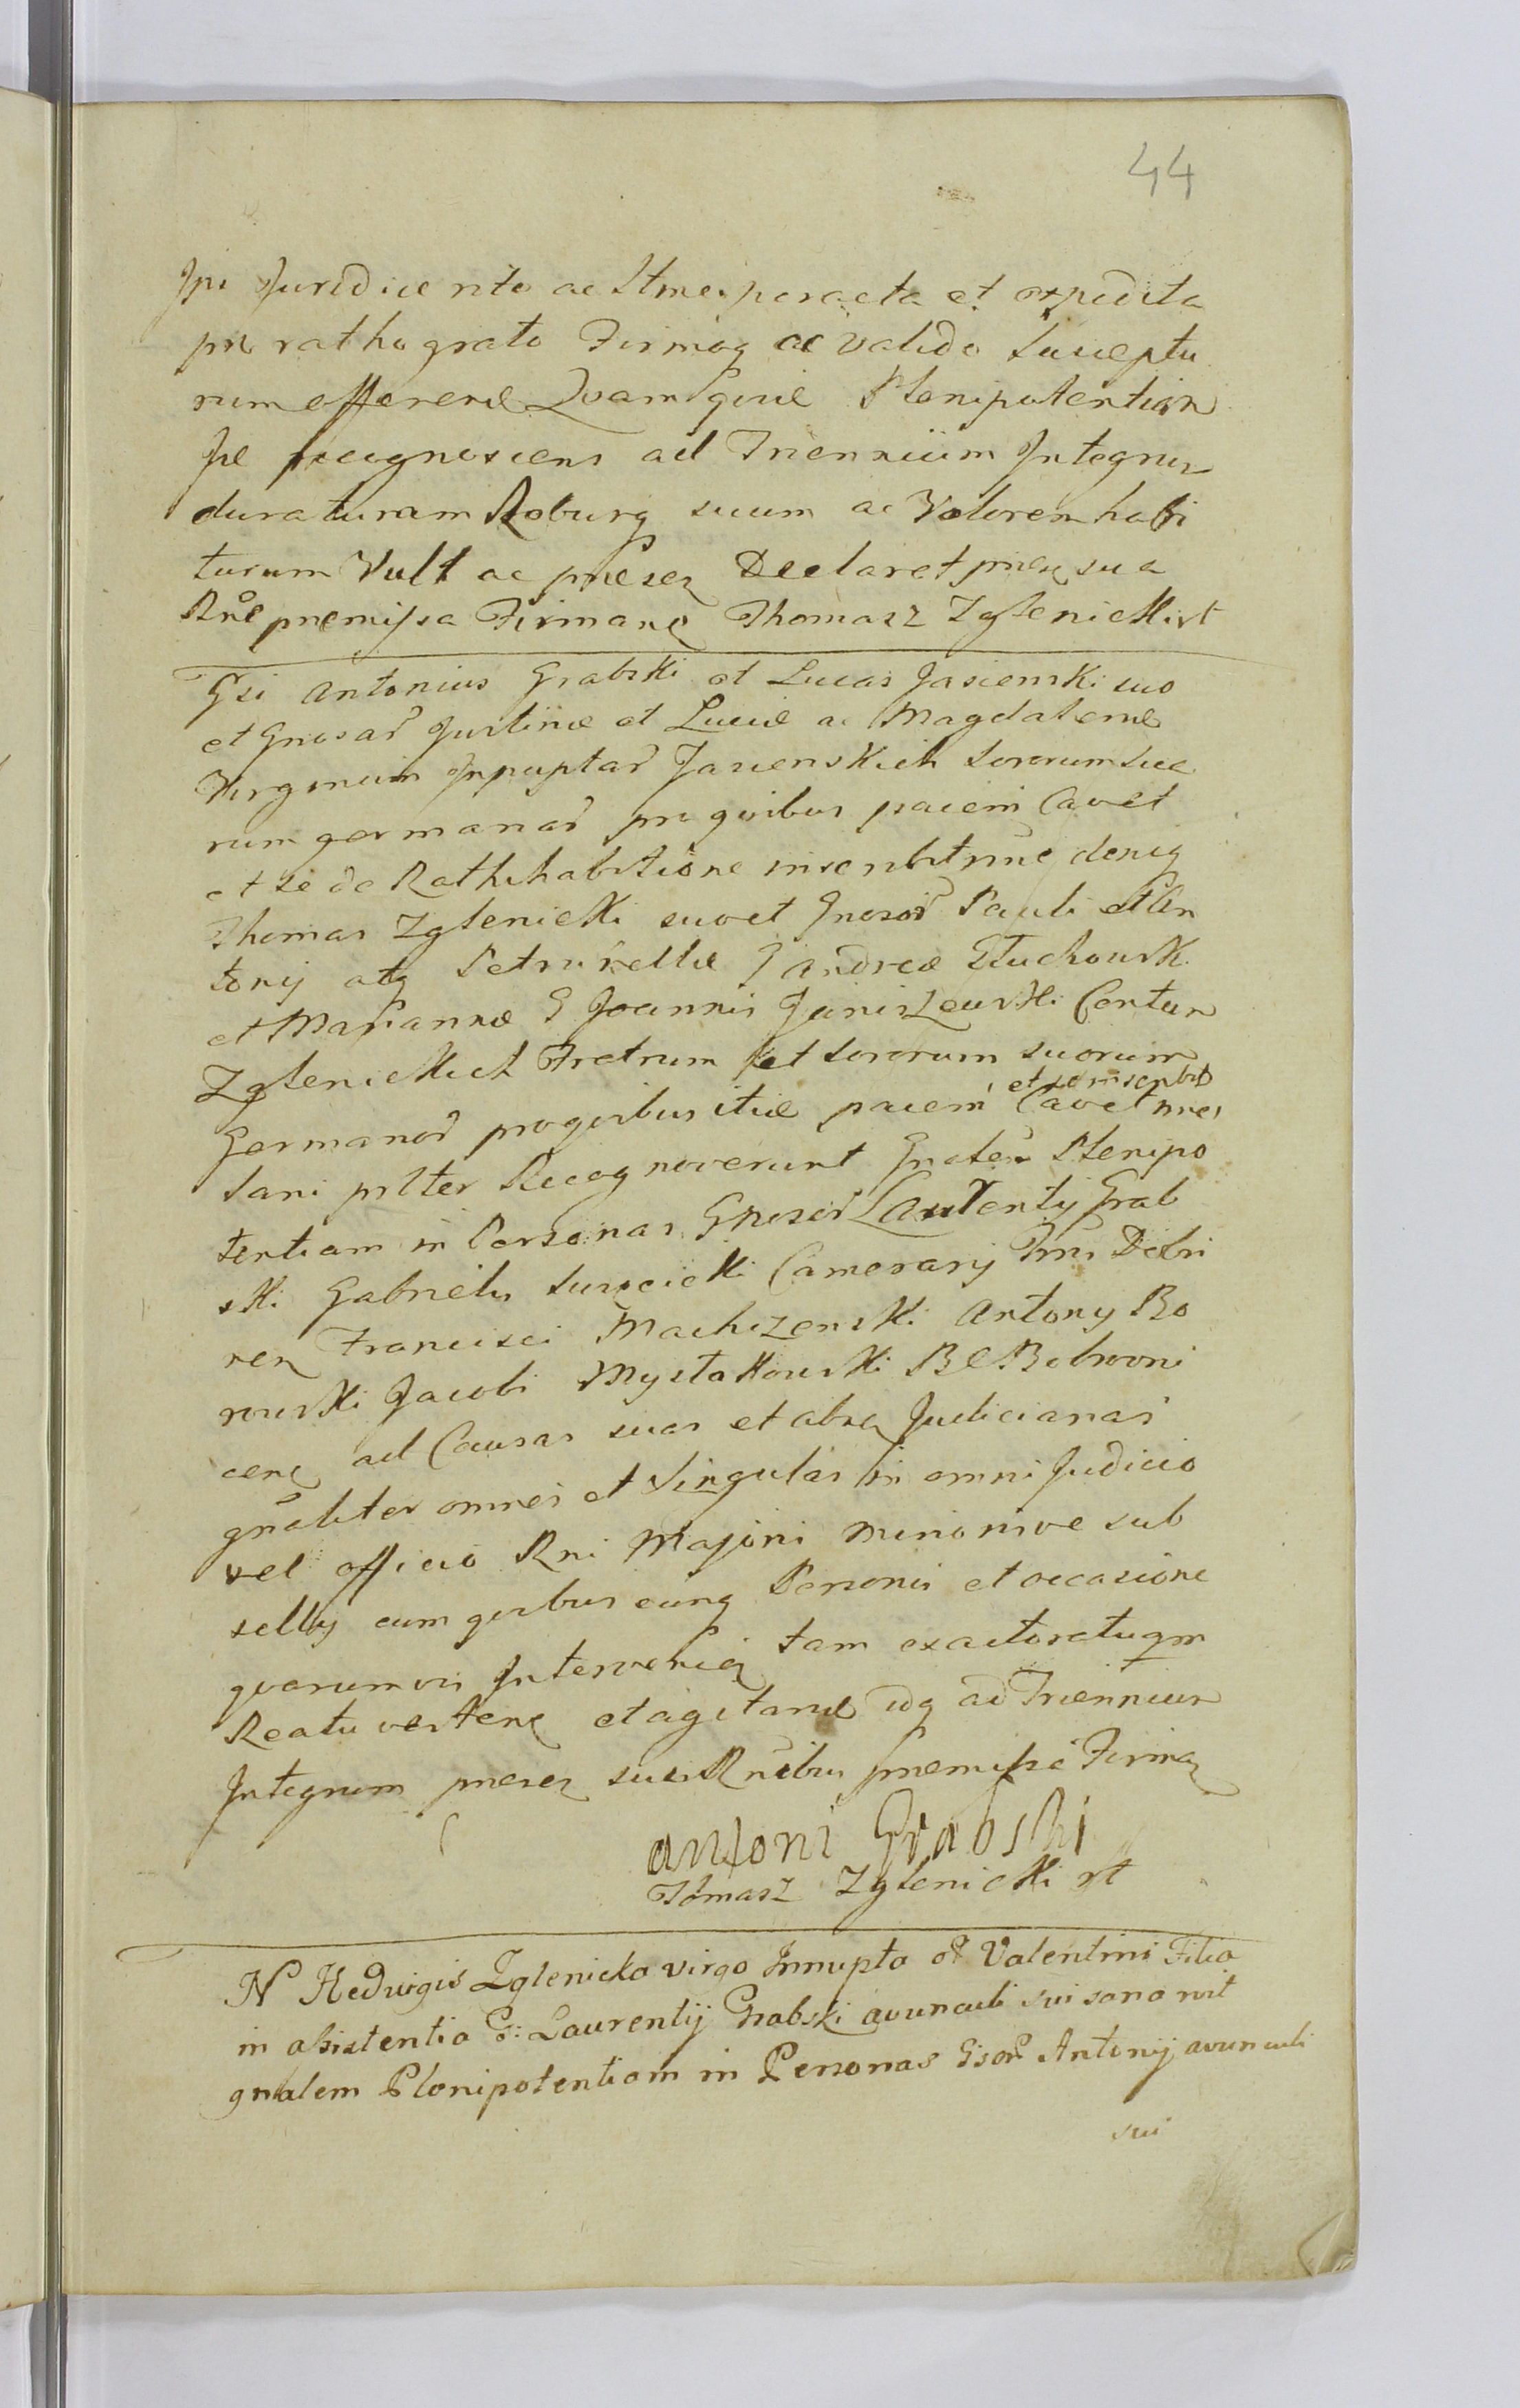 44
Juridice rite ac peracta et expedita
pro ratho grato Firmoq ac valido Susceptu
rum offerend Quamquid Plenipotentian
Ipse recognoscens ad Triennium Integrum
duraturam Roburq suum ac Valorem habi
turum Vult ac Declarat sua
Rne premissa Firmang Thomasz Zglenickist
Gsi Antonius Grabski et Lucas Jasienski suo
et Gnosar Justinæ et Luciæ ac Magdalenæ
Virginum Innuptar Jasienskich Sororum sua
rum germanar pro quibus pacem Cavet
et se de Rathihabitione inscribit deniq
Thomas Zglenicki suo et Gnosor Pauli et An
tonij atq Petronellæ G Andreæ Stuchowsk
et Mariannæ G Joannis Janiszewski Contun
Zglenickich Fratrum et Sororum suorum
et se inscribit
Germanor pro quibus itid pacem Cavet
sani plter Recognoverunt Gnalem Plenipo
tentiam in Personas Gnosor Laurentij Grab
ski Gabrielis Suroicki Camerarij Trrs Dobri
nen Francisci Machczenski Antony Bo
rowski Jacobi Mystkowski BC Bobrowni
cen ad Causas suas et Judiciarias
gnaliter omnes et Singulas in omni Judicio
vel officio Rni Majori minorive sub
selly cum quibuscunq Personis et occasione
quarumvis Intervenien tam ex actoratu qm
Reatu verten et agitand idq ad Triennium
Integrum suis Rnibus premissa Firman
antoni Grabski
Tomasz Zglenicki st
N Hedvigis Zglenicka virgo Innupta ol Valentini Filia
in assistentia G: Laurentij Grabski avunculi sui sana rvit
gnalem Plenipotentiam in Personas Gsor Antonij avunculi
sui